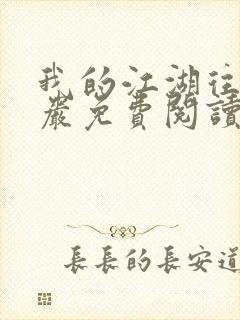 我的江湖往
嚴免費閱讀
長長的長安道